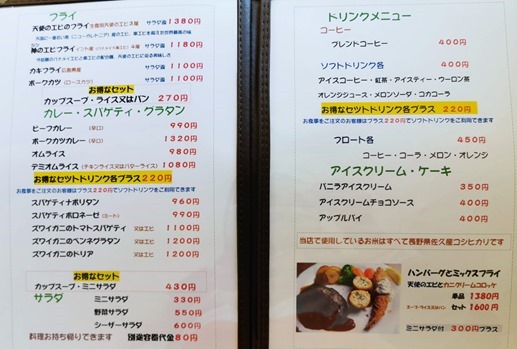 フライ
天使のエビのフライ 3種 サラダ付 1380円
神のエビフライ サラダ付 1180円
カキフライ 広島県産 サラダ付 1100円
ポークカツ (ロースカツ) サラダ付 1100円
お得なセット
カップスープ・ライス又はパン 270円
カレー・スパゲティ・グラタン
ビーフカレー (辛口) 990円
ポークカツカレー (辛口) 1320円
オムライス 980円
デミオムライス (チキンライス又はバターライス) 1080円
お得なセットドリンク各プラス220円
お食事をご注文のお客様はプラス220円でソフトドリンクをご利用できます
スパゲティナポリタン 960円
スパゲティボロネーゼ (ミート) 990円
ズワイガニのトマトスパゲティ 又はエビ 1100円
ズワイガニのペンネグラタン 又はエビ 1200円
ズワイガニのドリア 又はエビ 1200円
お得なセット
カップスープ・ミニサラダ 430円
サラダ ミニサラダ 330円
野菜サラダ 550円
シーザーサラダ 600円
料理お持ち帰りできます 別途容器代金80円
ドリンクメニュー
コーヒー
ブレンドコーヒー 400円
ソフトドリンク 各 400円
アイスコーヒー・紅茶・アイスティー・ウーロン茶
オレンジジュース・メロンソーダ・コカコーラ
お得なセットドリンク各プラス 220円
お食事をご注文のお客様はプラス220円でソフトドリンクをご利用できます
フロート各 450円
コーヒー・コーラ・メロン・オレンジ
アイスクリーム・ケーキ
バニラアイスクリーム 350円
アイスクリームチョコソース 400円
アップルパイ 400円
当店で使用しているお米はすべて長野県佐久産コシヒカリです
ハンバーグとミックスフライ
天使のエビとカニクリームコロッケ
単品 1380円
スープ・ライス又はパン セット 1600円
ミニサラダ付 300円プラス